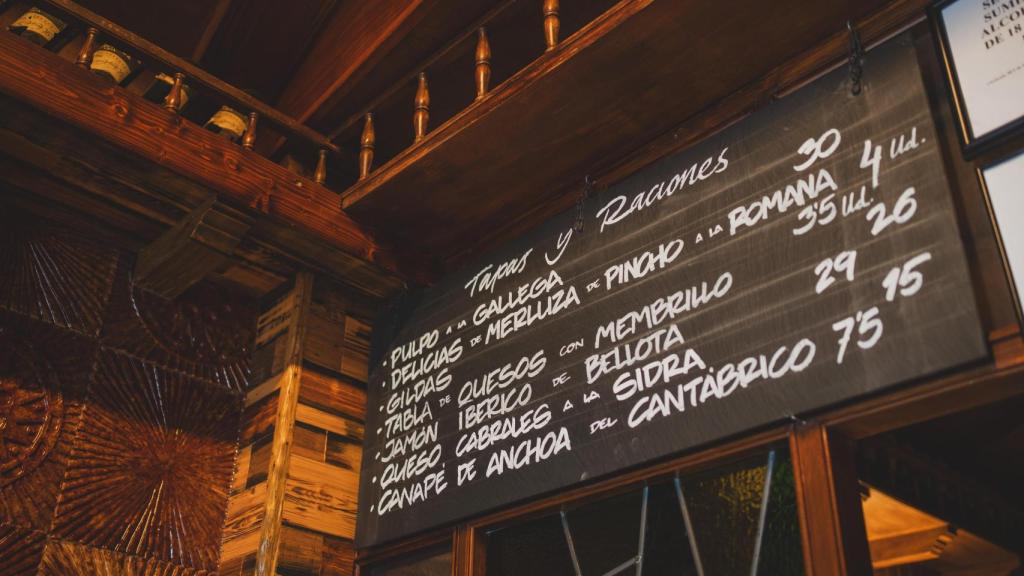 Tapas y Raciones
· PULPO A LA GALLEGA 30
· DELICIAS DE MERLUZA DE PINCHO A LA ROMANA 4 Ud.
· GILDAS 3'5 Ud.
· TABLA DE QUESOS CON MEMBRILLO 26
· JAMON IBERICO DE BELLOTA 29
· QUESO CABRALES A LA SIDRA 15
· CANAPE DE ANCHOA DEL CANTÁBRICO 7'5